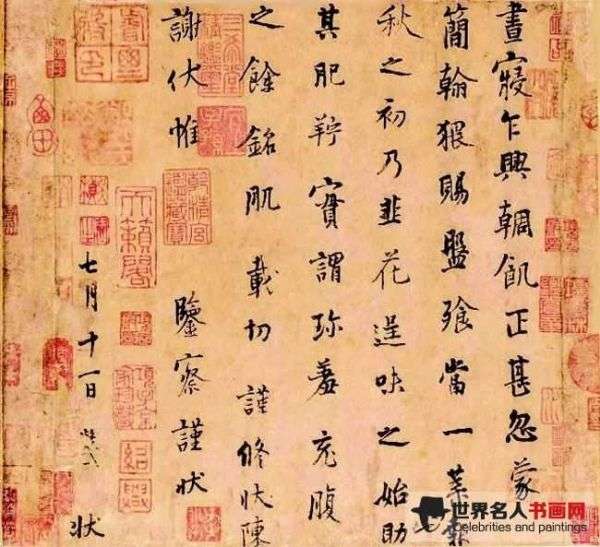 晝寢乍興輖飢正甚忽蒙
簡翰猥賜盤飧當一葉報
秋之初乃韭花逞味之始助
其肥羜實謂珍羞充腹
之餘銘肌載切謹修狀陳
謝伏惟鑒察謹狀
七月十一日 狀
天籟閣
世界名人书画网
Celebrities and paintings